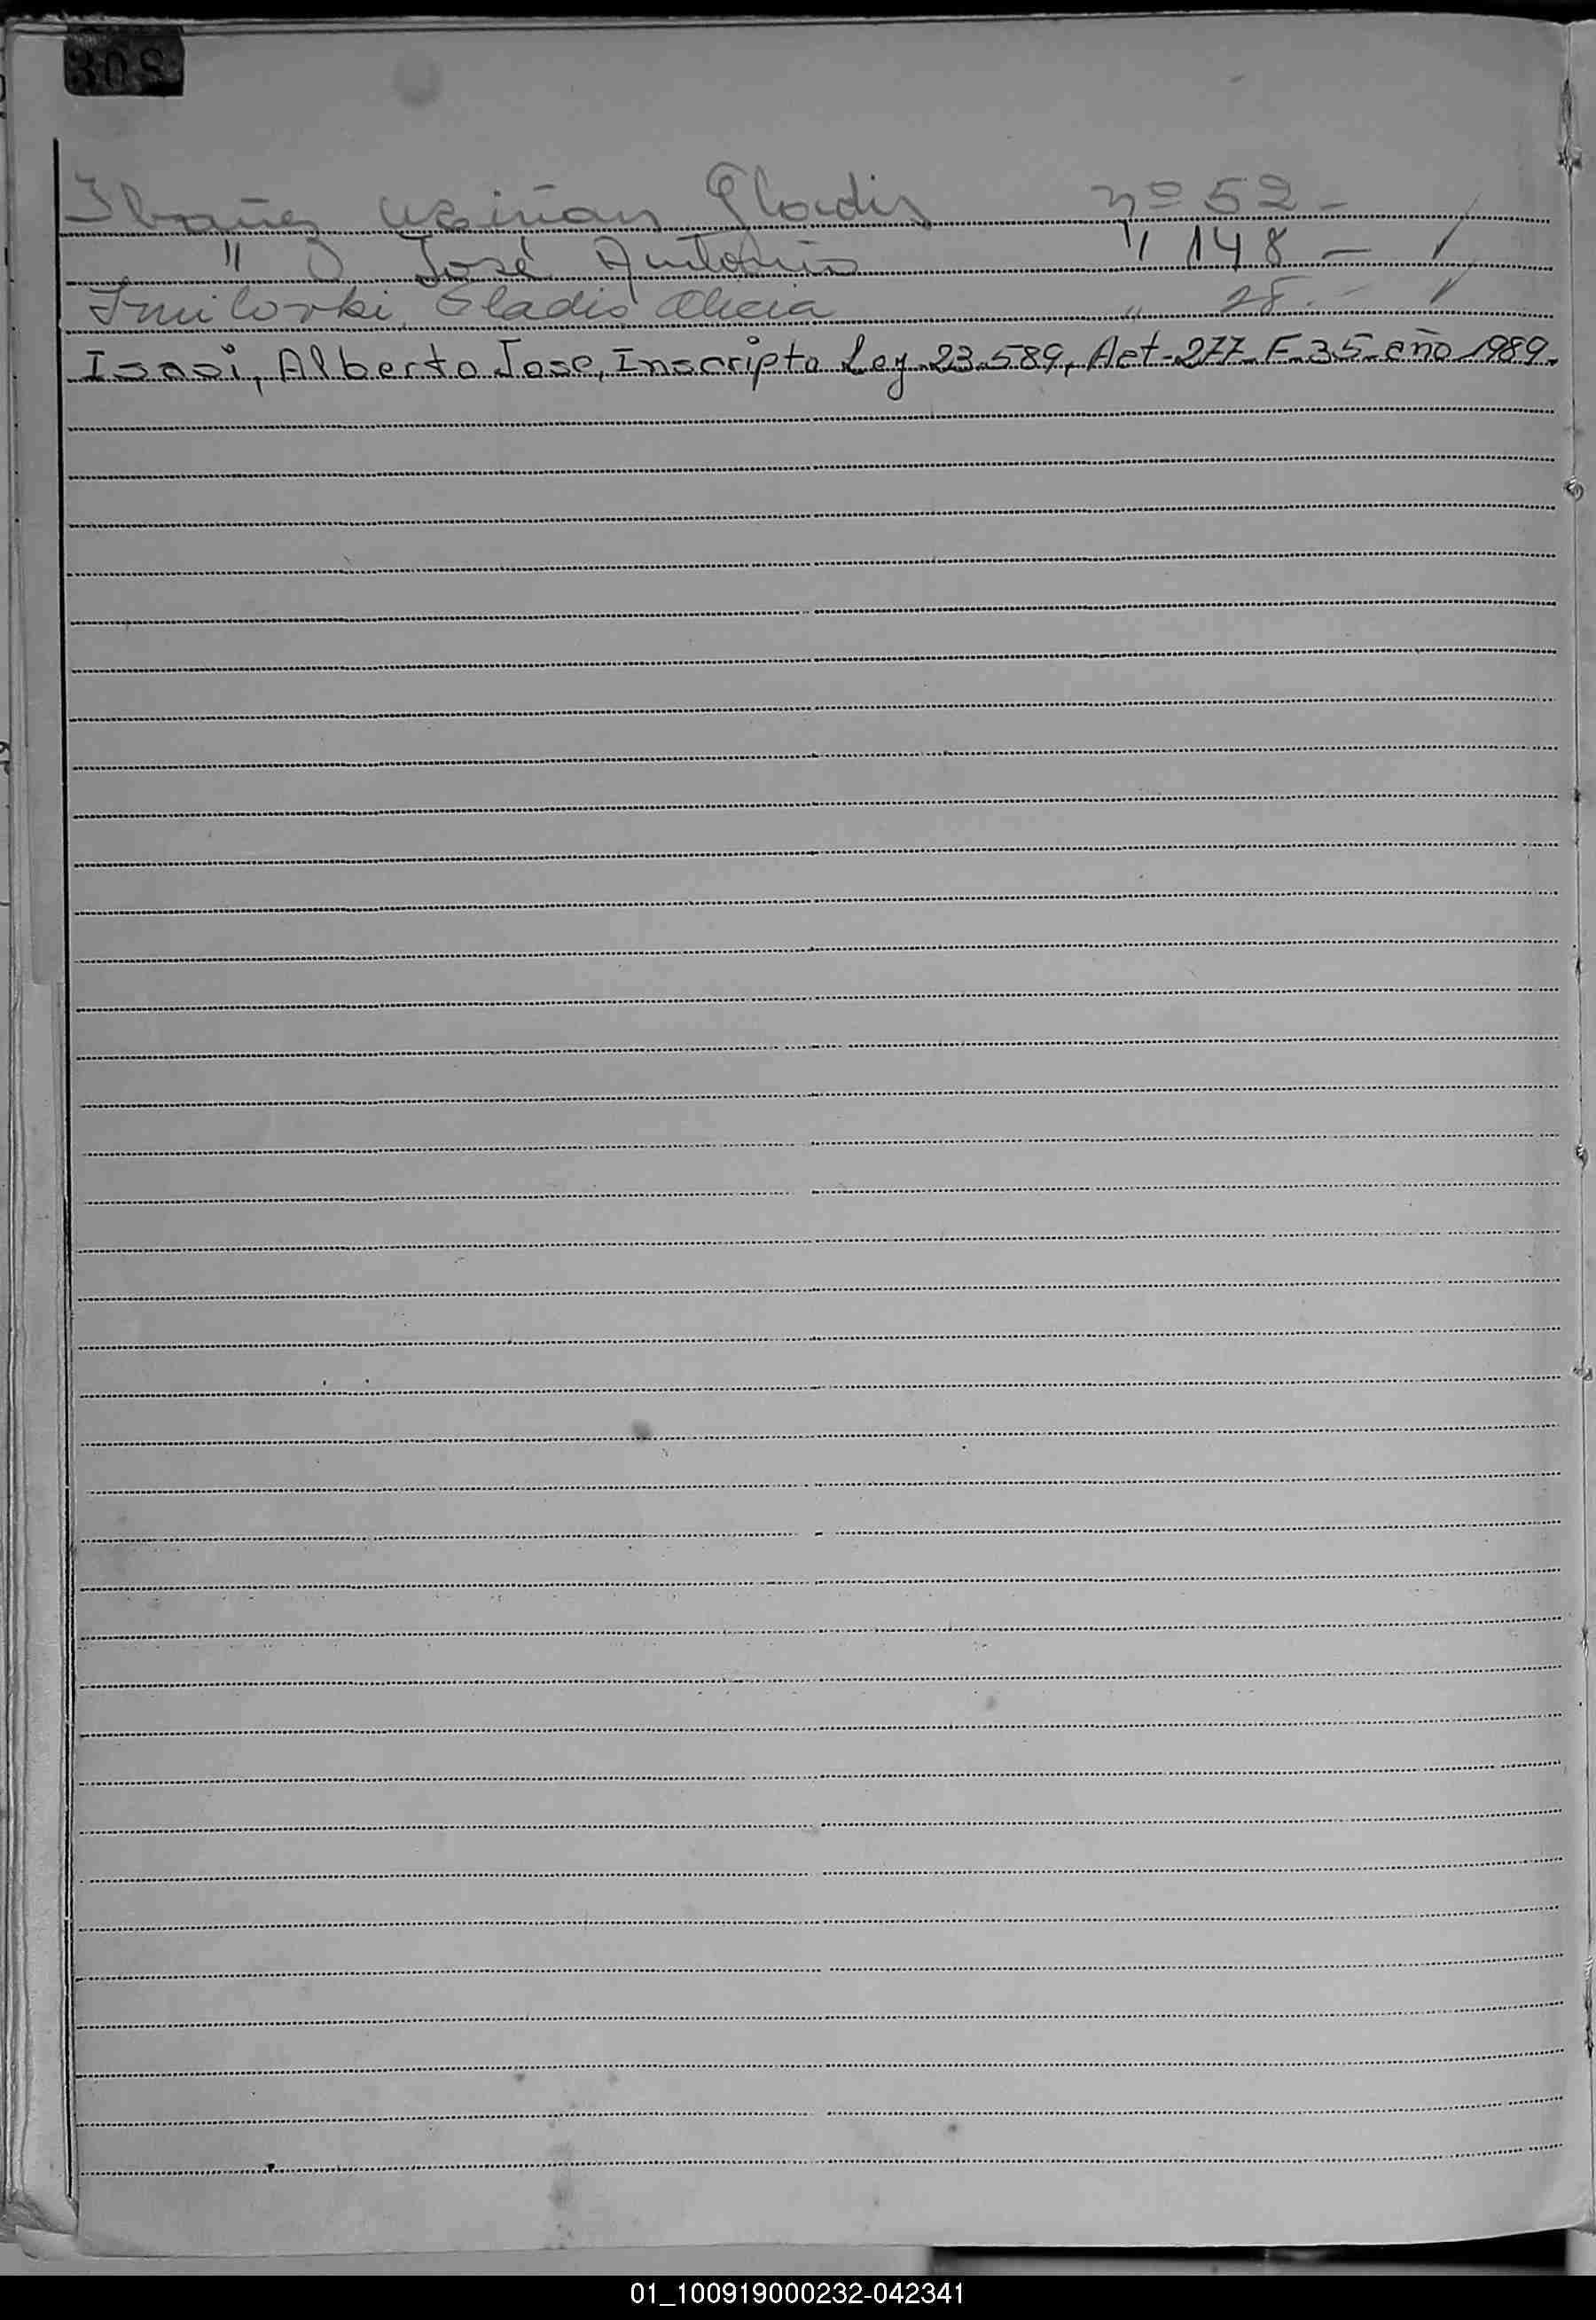 308
Ibañez Gladis nº 52 -
" José Antonio " 148 -
Gladis Alicia " 28 -
Isasi, Alberto Jose, Inscripto Ley 23.589, Act- 277 F- 35- año 1989.
01_100919000232-042341